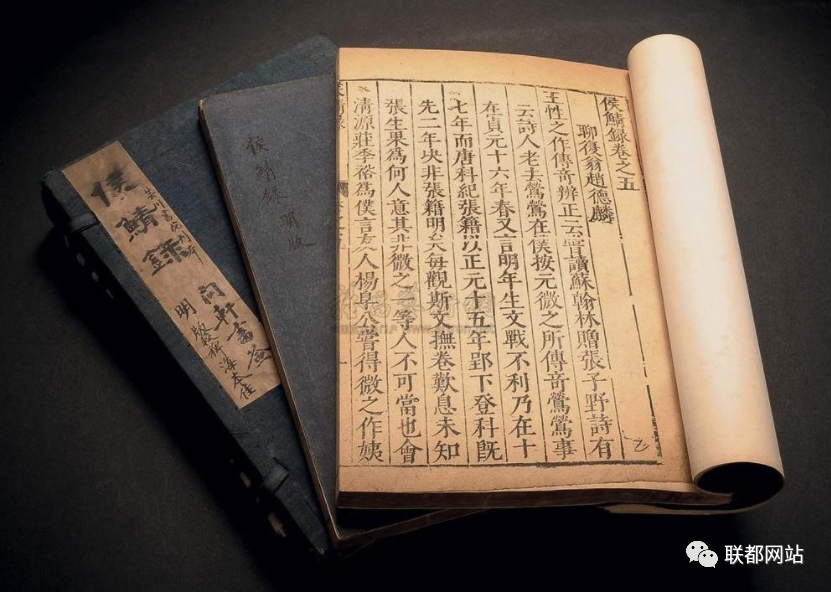 侯鯖錄卷之五
聊復翁趙德麟
王性之作傳奇辨正云嘗讀蘇翰林贈張子野詩有
云詩人老去鶯鶯在僕按元微之所傳奇鶯鶯事
在貞元十六年春又言明年生文戰不利乃在十
七年而唐科紀張籍以正元十五年郢下登科既
先二年夬非張籍明矣每觀斯文撫卷歎息未知
張生果為何人意其非微之一等人不可當也會
清源莊季裕為僕言友人楊阜公嘗得微之作姨
乙
侯鯖錄 明版
侯鯖錄
明
联都网站